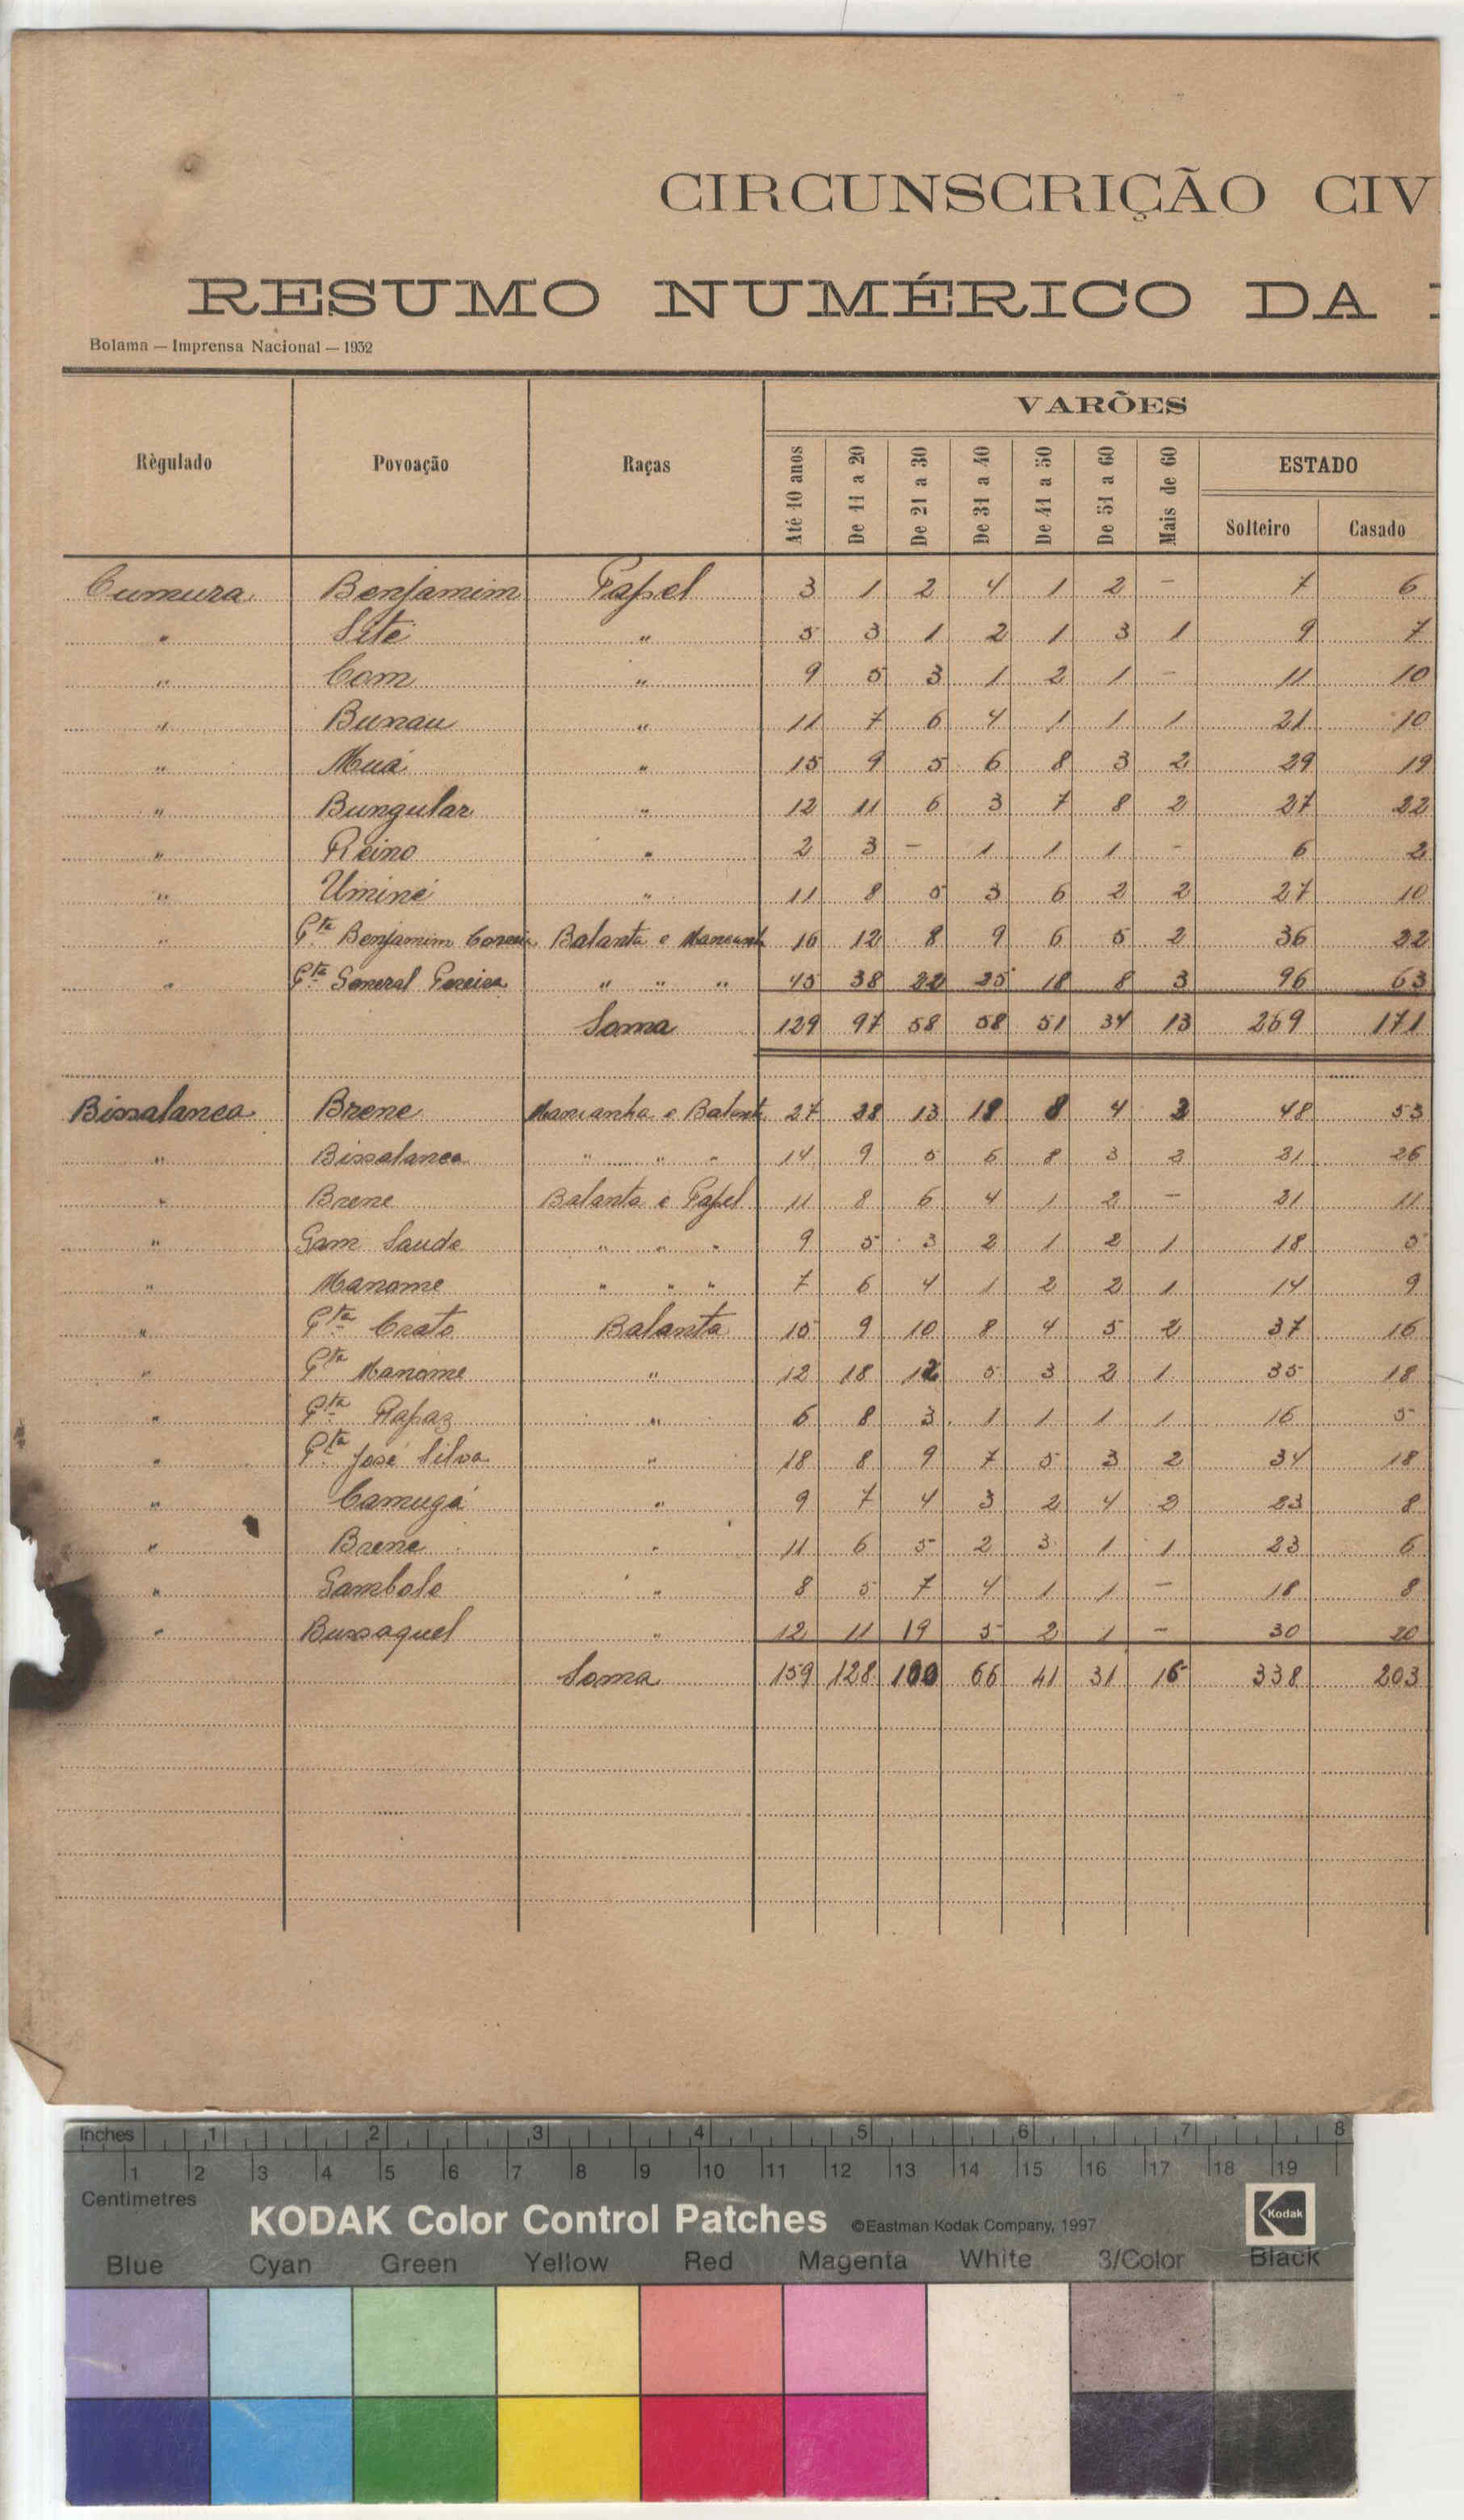 CIRCUNSCRIÇÃO CIV
RESUMO NUMÉRICO DA
Bolama — Imprensa Nacional — 1932
VARÕES
Règulado Povoação Raças Até 10 anos De 11 a 20 De 21 a 30 De 31 a 40 De 41 a 50 De 51 a 60 Mais de 60 ESTADO
Solteiro Casado
Cumura Benjamim Papel 3 1 2 4 1 2 — 7 6
" Sité " 5 3 1 2 1 3 1 9 7
" Com " 9 5 3 1 2 1 — 11 10
" Bunau " 11 7 6 4 1 1 1 21 10
" Muá " 15 9 5 6 8 3 2 29 19
" Bungular " 12 11 6 3 7 8 2 27 22
" Reino " 2 3 — 1 1 1 — 6 2
" Uminé " 11 8 5 3 6 2 2 27 10
" Pta Benjamim Correia Balanta e Mancanh 16 12 8 9 6 5 2 36 22
" Pta General Pereira " " " 45 38 22 25 18 8 3 96 63
Soma 129 97 58 58 51 34 13 269 171
Bissalanca Brene Mancanha e Balant 27 28 13 18 8 4 3 48 53
" Bissalanca " " " 14 9 5 6 8 3 2 21 26
" Brene Balanta e Papel 11 8 6 4 1 2 — 21 11
" Gam Saude " " " 9 5 3 2 1 2 1 18 5
" Maname " " " 7 6 4 1 2 2 1 14 9
" Pta Crato Balanta 15 9 10 8 4 5 2 37 16
" Pta Maname " 12 18 12 5 3 2 1 35 18
" Pta Rapaz " 6 8 3 1 1 1 1 16 5
" Pta José Silva " 18 8 9 7 5 3 2 34 18
" Camugá " 9 7 4 3 2 4 2 23 8
" Brene " 11 6 5 2 3 1 1 23 6
" Gambale " 8 5 7 4 1 1 — 18 8
" Bussaquel " 12 11 19 5 2 1 — 30 20
Soma 159 128 100 66 41 31 16 338 203
Inches 1 2 3 4 5 6 7 8
1 2 3 4 5 6 7 8 9 10 11 12 13 14 15 16 17 18 19
Centimetres
KODAK Color Control Patches ©Eastman Kodak Company, 1997 Kodak
Blue Cyan Green Yellow Red Magenta White 3/Color Black